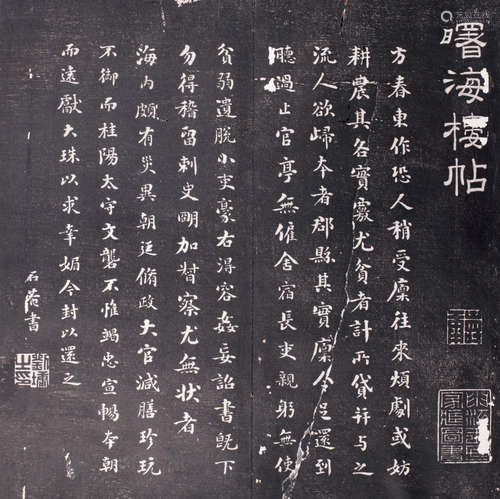 曙海楼帖
方春東作恐人稍受廩往來煩劇或妨
耕農其各實覈尤貧者計所貸并与之
流人欲歸本者郡縣其實廩令足還到
聽過止官亭無雇舍宿長吏親躬無使
貧弱遺脫小吏豪右得容姦妄詔書既下
勿得稽留刺史明加督察尤無狀者
海内頗有災異朝廷脩政大官減膳珍玩
不御而桂陽太守文礱不惟竭忠宣暢本朝
而遠獻大珠以求幸媚今封以還之
石菴書